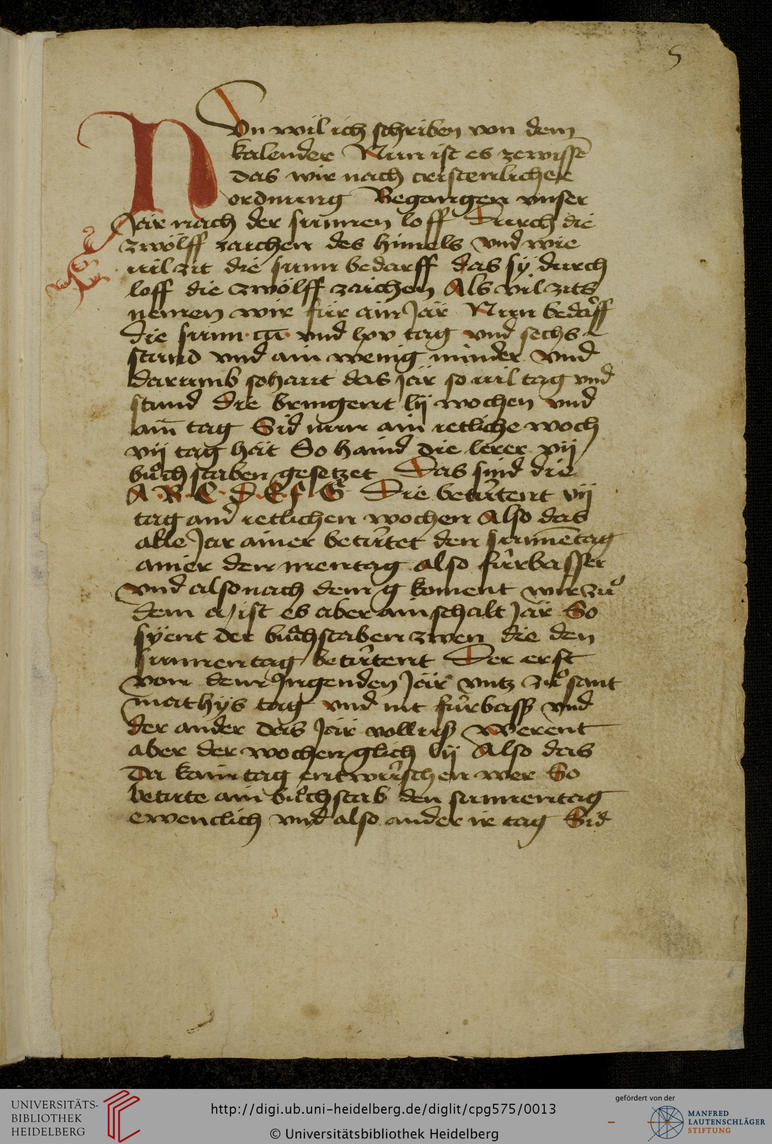 5
Nun wil ich schriben von dem
kalender Nun ist es zewissē
das wir nach cristenlicher
ordnung Begangen unser
Jar nach der sunnen loff Durch die
zwölff zaichen des himels vnd wie
uil zit die sunn bedarff das sy durch
loff die zwölff zaichen Als vil zits
nemen wir für ain Jär Nun bedarff
die sunn ccc vnd lxv tag vnd sechs
stund vnd ain wenig minder vnd
darumb so haut das jär so uil tag vnd
stund die bringent lij wochen vnd
ain tag Sid nun ain ietliche woch
vij tag hät So haind die lerer vij
bůchstaben gesetzet Das sind die
A · B · C · D · E f · G Die betütent vij
tag ainer ietlichen wochen Also das
alle Jar ainer betütet den sunnētag
ainer den mentag also fürbasser
vnd also nach dem g koment wir zů
dem a / ist es aber ain schalt Jär So
syent der bůchstaben zwen die den
sunnentag betütent Der erst
von dem Ingenden Jär vntz zů sant
mathÿs tag vnd nit fürbass vnd
der ander das Jär voll uss Werent
aber der wochen glich lij Also das
Da kain tag entwüschen wer So
betüte ain bůchstab den sunnentag
ewenclich vnd also ander ir tag Sid
UNIVERSITÄTS-
BIBLIOTHEK
HEIDELBERG
http://digi.ub.uni-heidelberg.de/diglit/cpg575/0013
© Universitätsbibliothek Heidelberg
gefördert von der
MANFRED
LAUTENSCHLÄGER
STIFTUNG